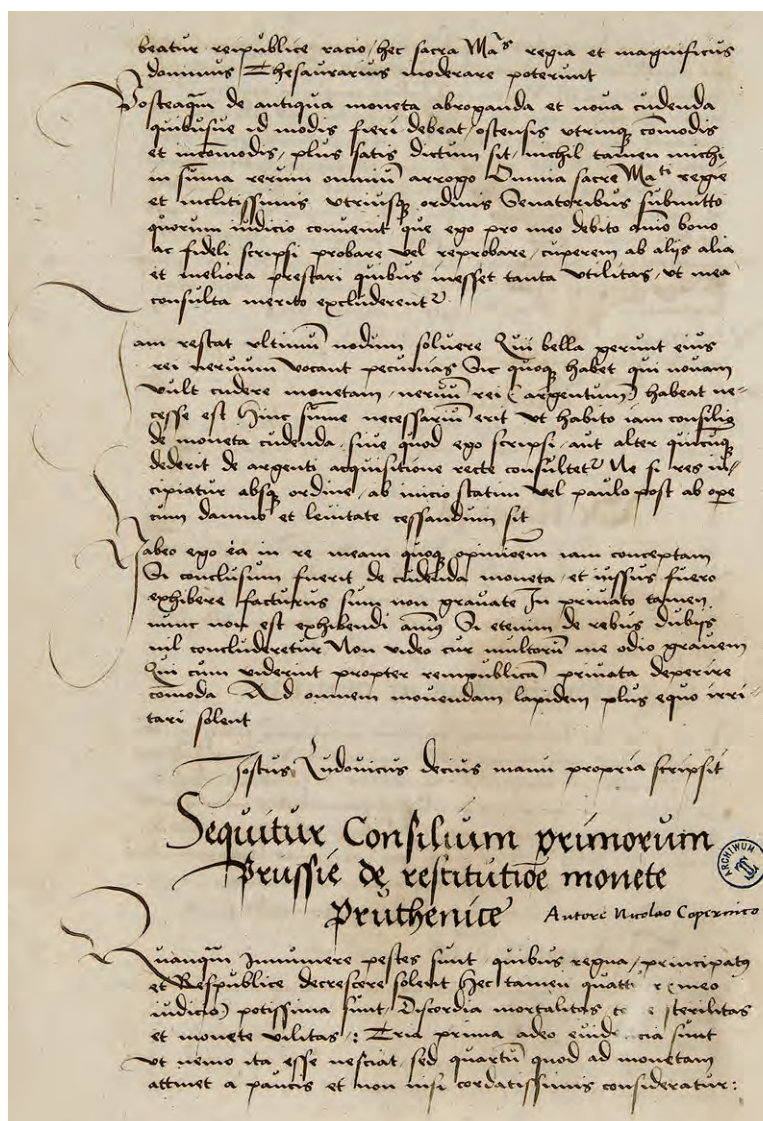 beatur reipublice racio, hec sacra Ma^s regia et magnificus
dominus Thesaurarius moderare poterunt
Posteaq̃m de antiqua moneta abroganda et noua cudenda
quibusue id modis fieri debeat, ostensis vtrinq; cōmodis
et incōmodis, plus satis dictum sit, nichil tamen michi
in sūma rerum omniū arrogo Omnia sacre Ma^ti regie
et inclitissimis vtriusq; ordinis Senatoribus submitto
quorum iudicio conuenit que ego pro meo debito om̄io bono
ac fideli scripsi probare vel reprobare, cuperem ab alijs alia
et meliora prestari quibus inesset tanta vtilitas, vt mea
consulta merito excluderent᷑.
Iam restat vltimū nodum soluere Qui bella gerunt eius
rei neruum vocant pecunias Sic quoq; habet qui nouam
vult cudere monetam, neruū rei (argentum) habeat ne=
cesse est Hinc sūme necessariū erit vt habito iam consilio
de moneta cudenda siue quod ego scripsi, aut alter quicūq;
dederit de argenti acquisitione recte consultet᷑ Ne si res in=
cipiatur absq; ordine, ab inicio statim vel paulo post ab opere
cum damno et leuitate cessandum sit
Habeo ego ea in re meam quoq; opinioēm iam conceptam
Si conclusum fuerit de cudenda moneta, et iussus fuero
exhibere facturus sum non grauate In priuato tamen
nunc non est exhibendi anīus Si etenim de rebus dubijs
nil concluderetur Non video cur multorū me odio grauem
Qui cum viderint propter rempublicā priuata deperire
cōmoda Ad omnem mouendam lapidem plus equo irri=
tari solent
Jostus Ludouicus decius manu propria scripsit
Sequitur Consilium primorum
Prussie de restitutiōe monete
Pruthenice Autore Nicolao Copernico
ARCHIWUM
Quanq̃m Innumere pestes sunt quibus regna, principatus
et Respublice decrescere solent Hec tamen quatt r (meo
iudicio) potissima sunt, Discordia mortalitas t e sterilitas
et monete vilitas,: Tria prima adeo euide cia sunt
vt nemo ita esse nesciat, sed quartū quod ad monetam
attinet a paucis et non nisi cordatissimis consideratur: